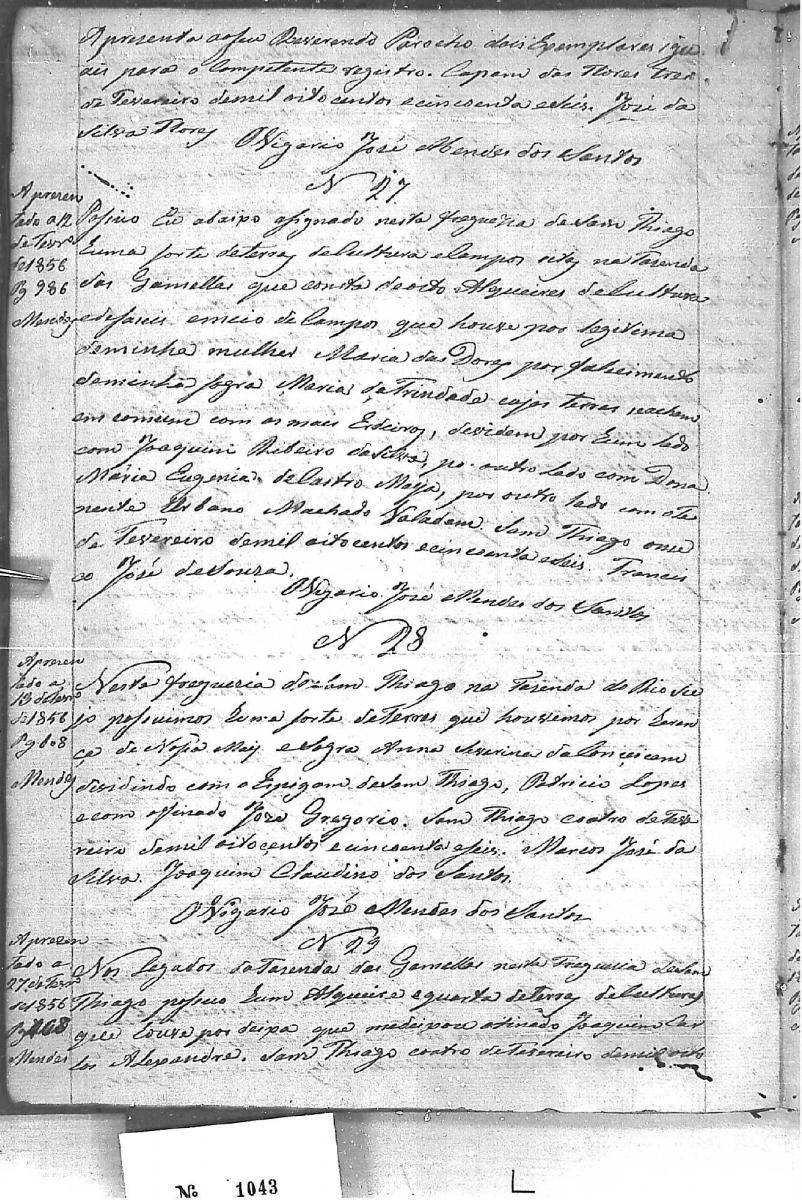 Apresenta ao seu Reverendo Parocho dois Exemplares igu
ais para o Competente registro. Capam das Flores tres
de Fevereiro demil oito centos ecincoenta eseis. José da
Silva Flores
O Vigario José Mendes dos Santos
N 27
Apresen
tado a 12
de Fevro
de 1856
Pg 986
Mendes
Possuo Eu abaixo asignado nesta freguezia de Sam Thiago
huma sorte deterras deCultura eCampos citas na Fazenda
das Gamellas que consta deoito Alqueires deCultura
edeseis emeio de Campos que houve por legitima
deminha mulher Maria das Dores por falecimento
deminha sogra Maria da Trindada cujas terras seacham
em comum com os mais Erdeiros, devidem por hum lado
com Joaquim Ribeiro da Silva, por outro lado com Dona
Maria Eugenia deCastro Maya, por outro lado com o Te
nente Urbano Machado Valadam. Sam Thiago onse
de Fevereiro demil oitocentos ecincoenta eseis. Francis
co José de Souza.
O Vigario José Mendes dos Santos
N 28
Apresen
tado a
13 de Fevro
de 1856
Pg 608
Mendes
Nesta freguezia de Sam Thiago na Fazenda do Rio Su
jo possuimos huma sorte deterras que houvemos por heran
ça de Nossa May e Sogra Anna Severina da Conceicam
dividindo com o Espigam deSam Thiago, Patricio Lopes
e com o finado José Gregorio. Sam Thiago coatro de Feve
reiro demil oitocentos ecincoenta eseis. Marcos José da
Silva. Joaquim Claudino dos Santos
O Vigario José Mendes dos Santos
N 29
Apresen
tado a
27 de Fevro
de 1856
Pg 108
Mendes
Nos Legados da Fazenda das Gamellas nesta Freguezia deSam
Thiago possuo hum Alqueire equarta deterras deCulturas
que houve por deixa que medeixou o finado Joaquim Car
los Alexandre. Sam Thiago coatro de Fevereiro demil oito
Nº 1043